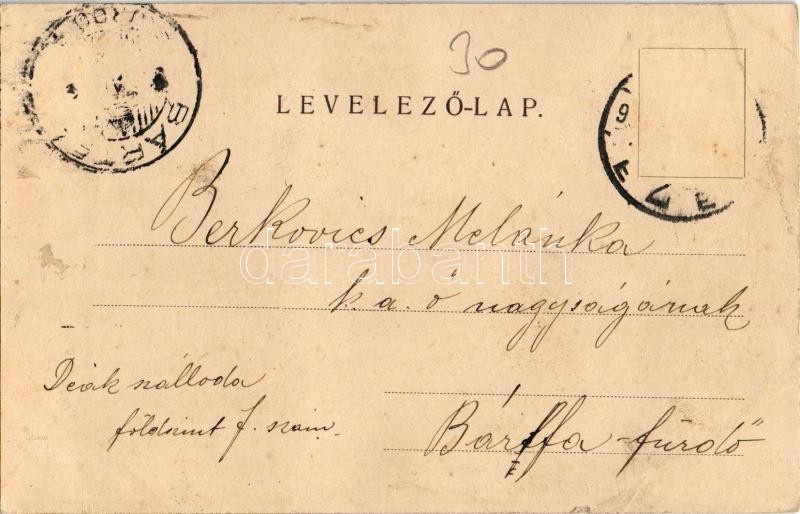 30
LEVELEZŐ-LAP.
BÁRTF
9
Berkovics Melánka
darabanth
k. a. ő nagyságának
Deák szálloda
földszint f. szám.
Bártfa-fürdő